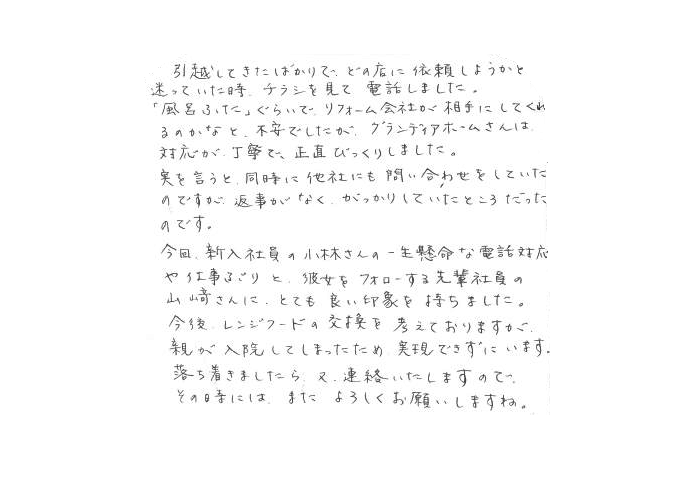 引越してきたばかりで、どの店に依頼しようかと
迷っていた時、チラシを見て電話しました。
「風呂ふた」ぐらいで、リフォーム会社が相手にしてくれ
るのかなと、不安でしたが、グランディアホームさんは、
対応が、丁寧で、正直びっくりしました。
実を言うと、同時に他社にも問い合わせをしていた
のですが、返事がなく、がっかりしていたところだった
のです。
今回、新入社員の小林さんの一生懸命な電話対応
や仕事ぶりと、彼女をフォローする先輩社員の
山﨑さんに、とても良い印象を持ちました。
今後、レンジフードの交換を考えておりますが、
親が入院してしまったため、実現できずにいます。
落ち着きましたら、又、連絡いたしますので、
その時には、またよろしくお願いしますね。